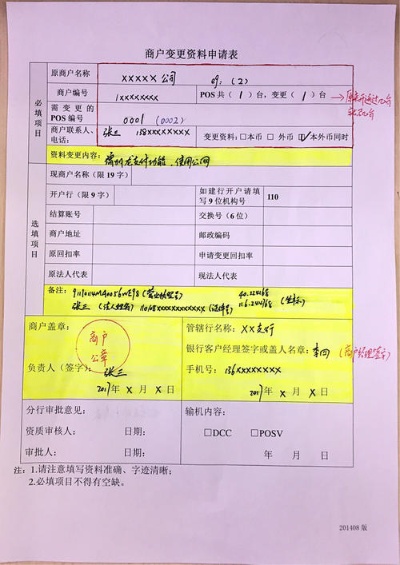 商户变更资料申请表
必填项目
原商户名称 XXXXX 公司 (2)
商户编号 1xxxxxxxx POS共( 1 )台，变更( 1 )台
需变更的POS编号 0001 (0002)
商户联系人、电话: 张三、138xxxxxxxx 变更资料:□本币 □外币 ☑本外币同时
资料变更内容:
选填项目
现商户名称(限19字)
开户行(限9字) 如建行开户请填写9位机构号 110
结算账号 交换号(6位)
商户地址 邮政编码
原回扣率 申请变更回扣率
原法人代表 现法人代表
备注:
张三
商户盖章: 管辖行名称: XX支行
商户公章
银行客户经理签字或盖人名章: 李四 (客户经理签字)
负责人(签字): 张三 手机号: 136xxxxxxxx
2017年 X 月 X 日 2017年 X 月 X 日
分行审批意见: 输机内容:
资质审核人: 日期: □DCC □POSV
审批人: 日期: 年 月 日
注: 1.请注意填写资料准确、字迹清晰;
2.必填项目不得有空缺。
201408 版